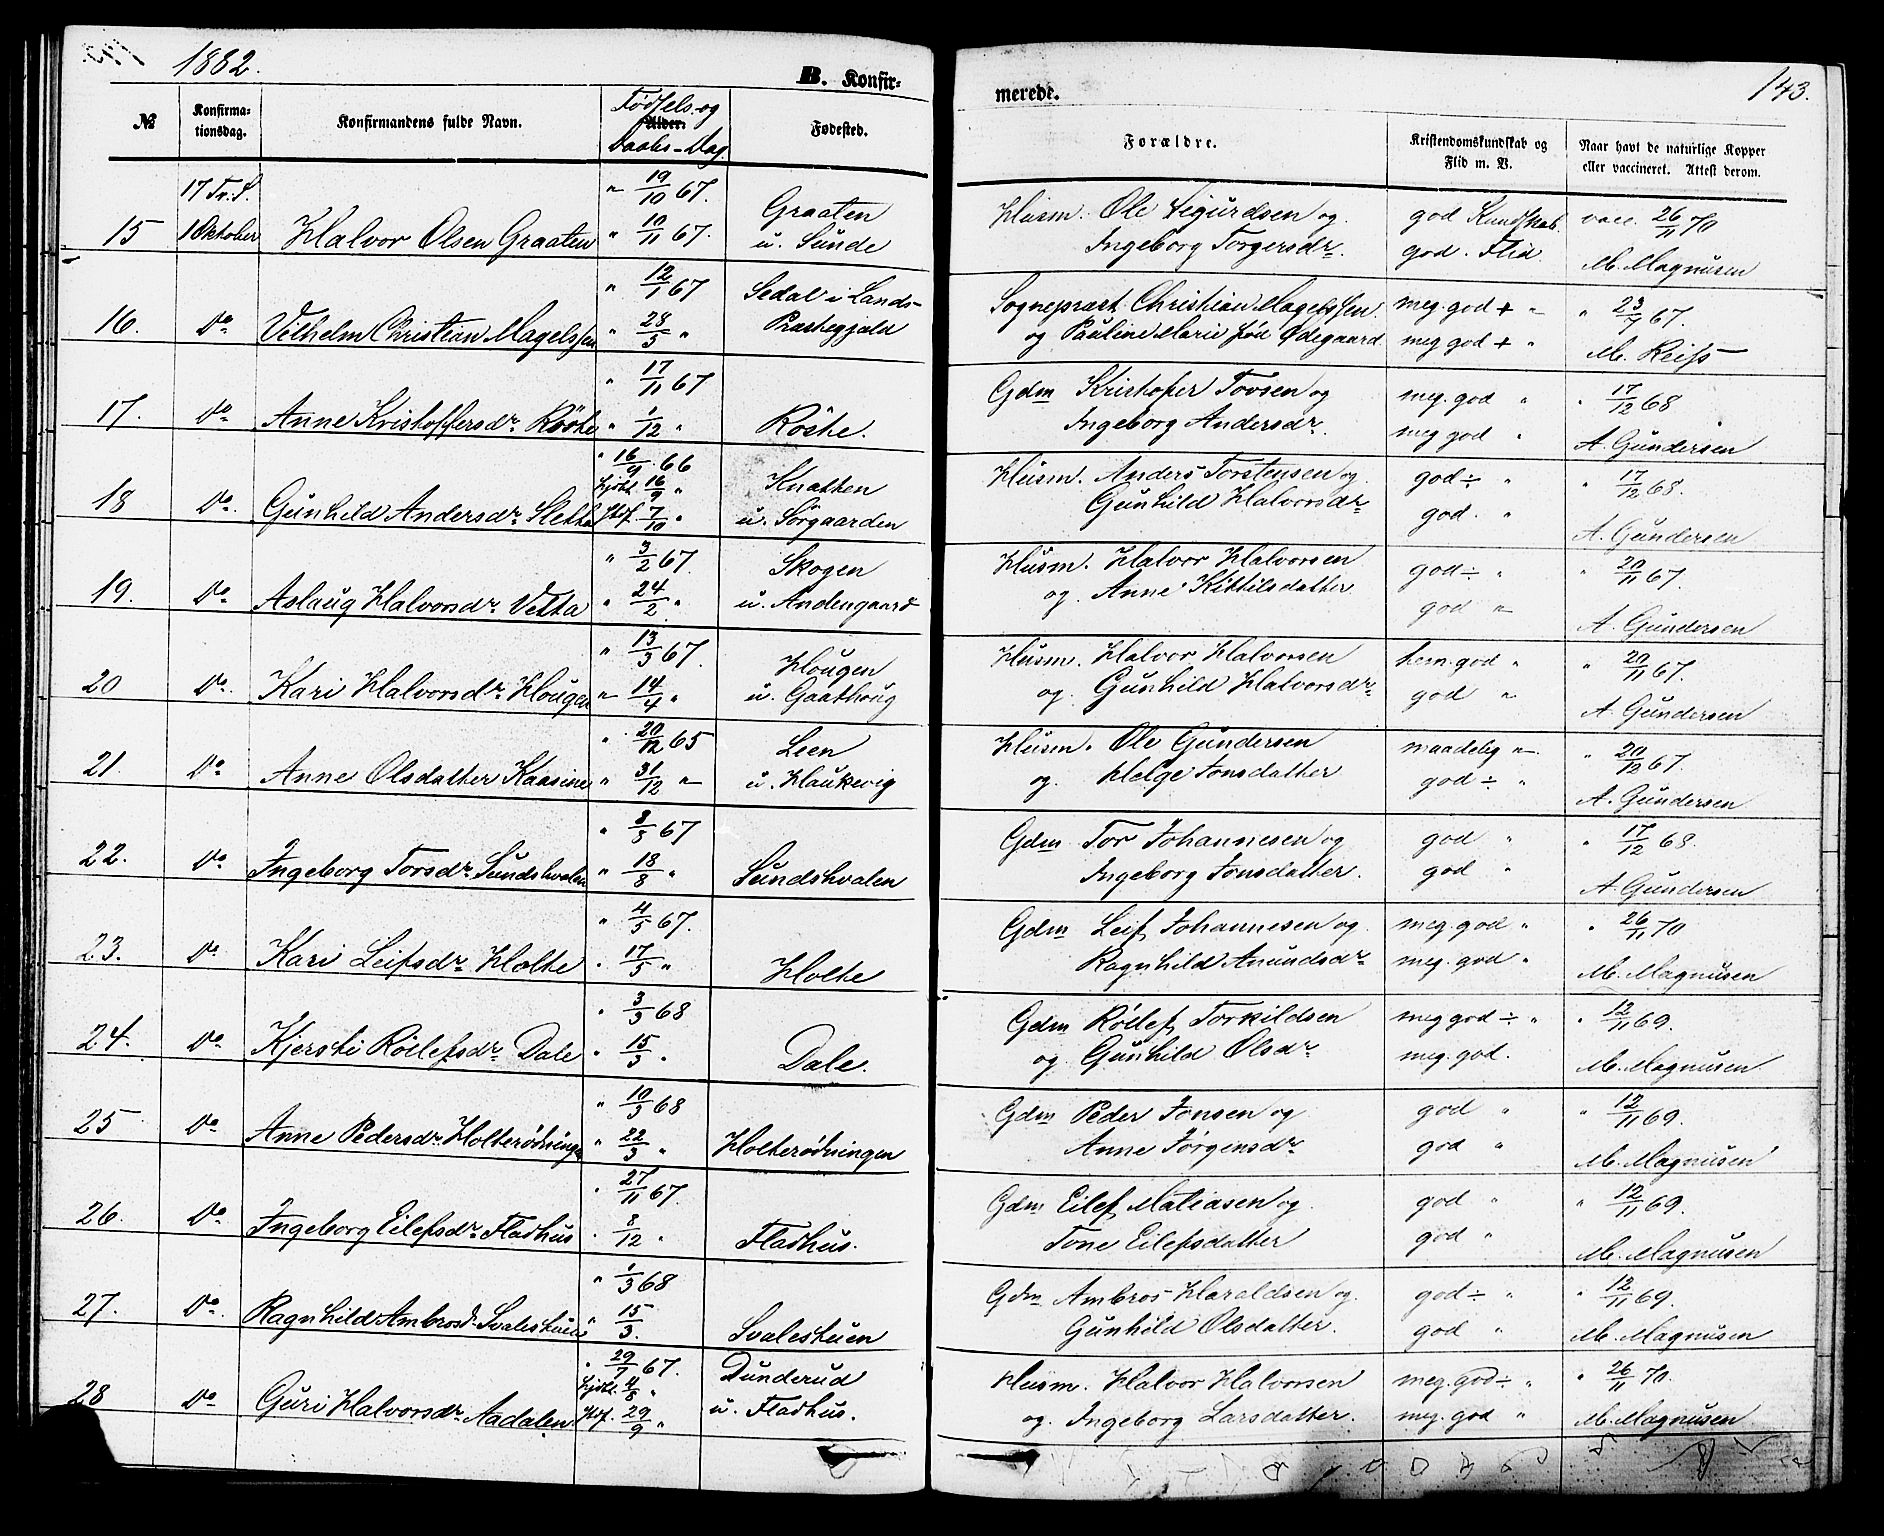 1882.
B. Konfir-
merede.
143.
№ Konfirma-tionsdag. Konfirmandens fulde Navn. Fødsels- og Alder. Daabs-Dag. Fødested. Forældre. Kristendomskundskab og Flid m. V. Naar havt de naturlige Kopper eller vaccineret. Attest derom.
17 Tr. S. " 19/10 67. Graaten Husm. Ole Sigurdsen og god Kundskab vacc. 26/11 70
15 1 Oktober Halvor Olsen Graaten " 10/11 67. u. Sunde Ingeborg Torgersdr. god. Flid M. Magnusen
" 12/1 67 Sedal i Lands- Sognepræst Christian Magelssen meg. god + " " 23/7 67.
16. Do Vilhelm Christian Magelssen " 28/5 " Præstegjæld og Pauline Marie fød Ødegaard meg god + " M. Reiss
" 17/11 67 Gdm Kristofer Tovsen og meg. god " " 17/12 68
17. Do Anne Kristoffersdr. Röste " 1/12 " Röste. Ingeborg Andersdr. meg god " A. Gundersen
" 16/9 66 Husm. Anders Torstensen og god ÷ " " 17/12 68.
hjdt. 16/9 " Knatten
18 Do. Gunhild Andersdr. Sletta Stdf. 7/10 " u. Sörgaarden Gunhild Halvorsdr. god. " A. Gundersen
" 3/2 67. Skogen Husm. Halvor Halvorsen god ÷ " " 20/11 67.
19. Do Aslaug Halvorsdr. Vetta " 24/2 " u. Andengaard og Anne Kittilsdatter god " A. Gundersen
" 13/3 67. Hougen Husm. Halvor Halvorsen tem. god " " 20/11 67.
20 Do. Kari Halvorsdr. Hougen " 14/4 " u. Gaathoug og Gunhild Halvorsdr. god " A. Gundersen
" 20/12 65 Leen Husm. Ole Gundersen maadelig " " 20/12 67.
21. Do Anne Olsdatter Kaasine " 31/12 " u. Haukevig og Helge Jonsdatter god ÷ " A. Gundersen
" 8/5 67 Gdm Tor Johannesen og god " " 17/12 68.
22. Do Ingeborg Torsdr. Sundskvalen " 18/8 " Sundskvalen Ingeborg Jonsdatter. god " A. Gundersen
" 4/5 67. Gdm Leif Johannesen og meg. god " " 26/11 70
23. Do Kari Leifsdr. Holte " 17/5 " Holte Ragnhild Anundsdr. meg. god " M. Magnusen
" 3/3 68 Gdm Röllef Torkildsen meg god ÷ " " 12/11 69.
24. Do Kjersti Röllefsdr. Dale " 15/3 " Dale. og Gunhild Olsdr. meg. god. M. Magnusen
" 10/3 68 Gdm Peder Jonsen og god " " 12/11 69.
25 Do Anne Pedersdr. Holterødningen " 22/3 " Holterødningen Anne Jørgensdr. god " M. Magnusen
" 27/11 67. Gdm Eilef Matiasen og god " " 12/11 69.
26. Do Ingeborg Eilefsdr. Fladhus " 8/12 " Fladhus. Tone Eilefsdatter god " M. Magnusen
" 1/3 68 Gdm Ambros Haraldsen og god ÷ " " 12/11 69.
27. Do. Ragnhild Ambrosd. Svalestuen " 15/3. Svalestuen Gunhild Olsdatter. god " M. Magnusen
" 29/7 67. Dunderud Husm. Halvor Halvorsen meg. god ÷ " " 26/11 70.
hjdt. 4/8 "
28 Do Guri Halvorsdr. Aadalen Stdf. 29/9 " u. Fladhus. og Ingeborg Larsdatter. meg. god " M. Magnusen